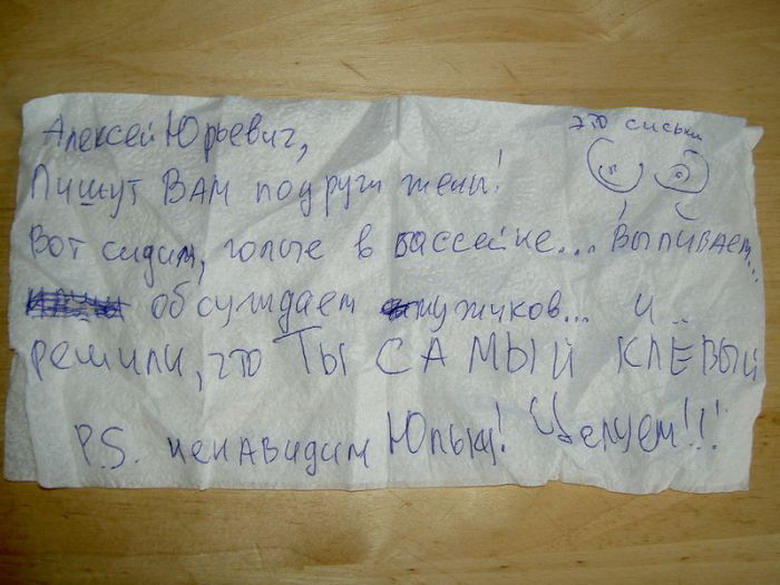 это сиськи
Алексей Юрьевич,
Пишут ВАМ подруги жены!
Вот сидим, голые в бассейне... Выпиваем...
обсуждаем мужичков... и..
решили, что ТЫ САМЫЙ КЛЁВЫЙ
P.S. ненавидим Юльку! Целуем!!!